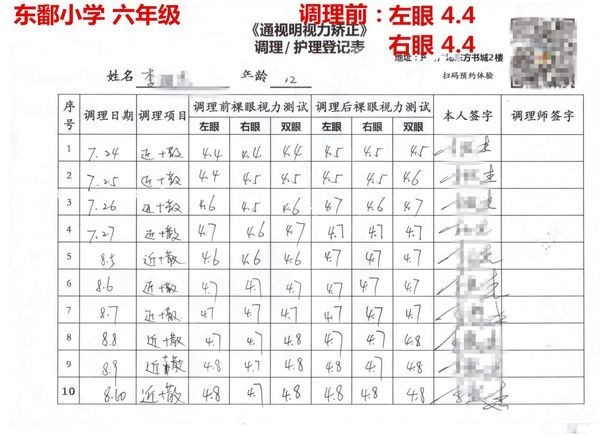 东鄱小学 六年级 调理前：左眼 4.4
《通视明视力矫正》 右眼 4.4
调理/护理登记表
地址： 东方书城2楼
姓名 李 年龄 12 扫码预约体验
序号 调理日期 调理项目 调理前裸眼视力测试 调理后裸眼视力测试 本人签字 调理师签字
左眼 右眼 双眼 左眼 右眼 双眼
1 7.24 近+散 4.4 4.4 4.4 4.5 4.5 4.5
2 7.25 近+散 4.4 4.5 4.5 4.5 4.5 4.6
3 7.26 近+散 4.6 4.5 4.6 4.7 4.6 4.7
4 7.27 近+散 4.7 4.6 4.7 4.7 4.7 4.7
5 8.5 近+散 4.6 4.6 4.6 4.7 4.7 4.7
6 8.6 近+散 4.7 4.7 4.7 4.7 4.7 4.7
7 8.7 近+散 4.7 4.7 4.7 4.7 4.7 4.7
8 8.8 近+散 4.7 4.7 4.8 4.7 4.7 4.8
9 8.9 近+散 4.8 4.7 4.8 4.8 4.7 4.8
10 8.10 近+散 4.8 4.7 4.8 4.8 4.8 4.8